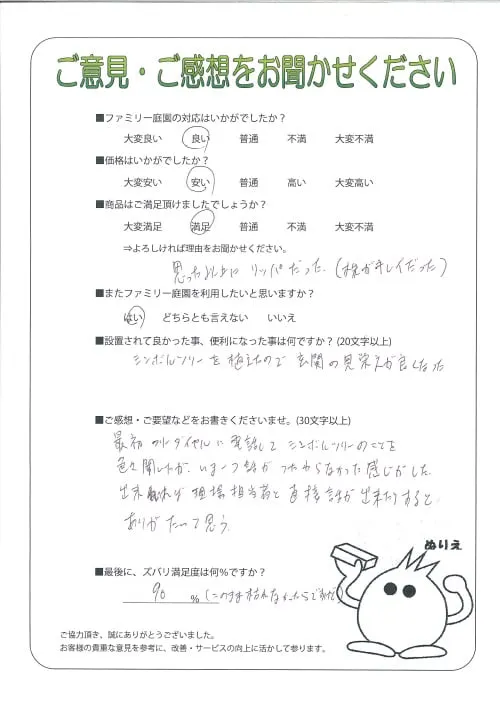 ご意見・ご感想をお聞かせください
■ファミリー庭園の対応はいかがでしたか？
大変良い 良い 普通 不満 大変不満
■価格はいかがでしたか？
大変安い 安い 普通 高い 大変高い
■商品はご満足頂けましたでしょうか？
大変満足 満足 普通 不満 大変不満
⇒よろしければ理由をお聞かせください。
思った以上に リッパだった。(枝がキレイだった)
■またファミリー庭園を利用したいと思いますか？
はい どちらとも言えない いいえ
■設置されて良かった事、便利になった事は何ですか？(20文字以上)
シンボルツリーを植えたので 玄関の見栄えが良くなった
■ご感想・ご要望などをお書きくださいませ。(30文字以上)
最初 フリーダイヤルに電話して シンボルツリーのことを
色々聞いたが、いま一つ話が つたわらなかった感じがした。
出来れば 現場担当者と直接話が出来たりすると
ありがたいって思う。
ぬりえ
■最後に、ズバリ満足度は何％ですか？
90 % (このまま枯れなかったらですが)
ご協力頂き、誠にありがとうございました。
お客様の貴重な意見を参考に、改善・サービスの向上に活かして参ります。